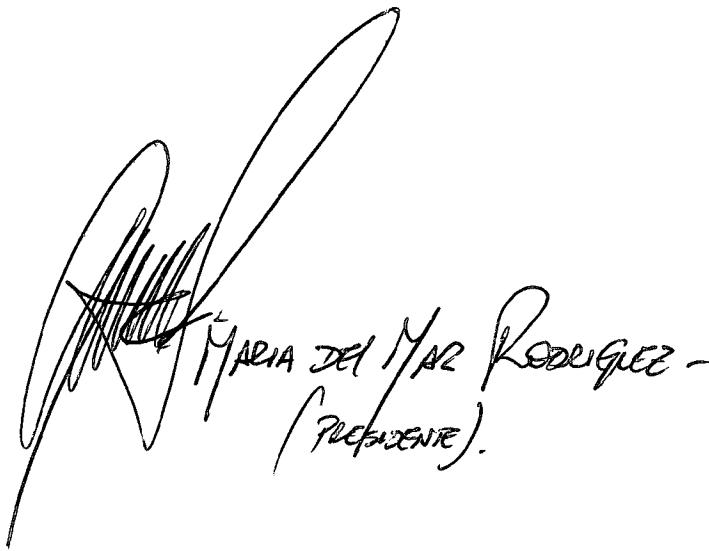 MARIA DEL MAR RODRIGUEZ -
(PRESIDENTE).